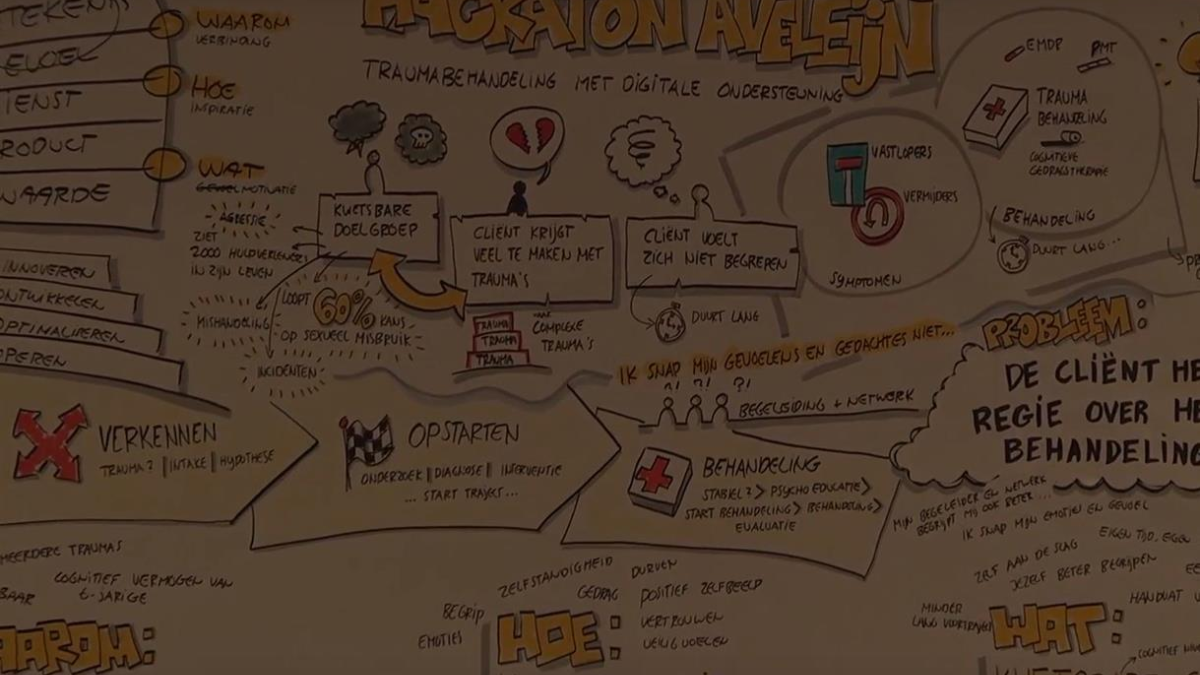 HACKATON AVELEIJN
TRAUMABEHANDELING MET DIGITALE ONDERSTEUNING
WAAROM
VERBINDING
HOE
INSPIRATIE
WAT
MOTIVATIE
IENST
RODUCT
WAARDE
INNOVEREN
ONTWIKKELEN
OPTIMALISEREN
OPEREN
AGRESSIE
ZIET
2000 HULPVERLENERS
IN ZIJN LEVEN
MISHANDELING
LOOPT
60% KANS
OP SEXUEEL MISBRUIK
INCIDENTEN
KWETSBARE
DOELGROEP
CLIËNT KRIJGT
VEEL TE MAKEN MET
TRAUMA'S
TRAUMA
TRAUMA
TRAUMA
COMPLEXE
TRAUMA'S
CLIËNT VOELT
ZICH NIET BEGREPEN
DUURT LANG
VASTLOPERS
VERMIJDERS
SYMPTOMEN
EMDR
PMT
TRAUMA
BEHANDELING
COGNITIEVE
GEDRAGSTHERAPIE
BEHANDELING
DUURT LANG...
IK SNAP MIJN GEVOELENS EN GEDACHTES NIET...
?! ?! ?!
BEGELEIDING + NETWERK
PROBLEEM:
DE CLIËNT HE
REGIE OVER HE
BEHANDELING
VERKENNEN
TRAUMA? | INTAKE | HYPOTHESE
OPSTARTEN
ONDERZOEK | DIAGNOSE | INTERVENTIE
... START TRAJECT...
BEHANDELING
STABIEL? > PSYCHO EDUCATIE >
START BEHANDELING > BEHANDELING >
EVALUATIE
MIJN BEGELEIDER EN NETWERK
BEGRIJPT MIJ OOK BETER...
IK SNAP MIJN EMOTIES EN GEVOEL
ZELF AAN DE SLAG
EIGEN TIJD, EIGEN
JEZELF BETER BEGRIJPEN
HANDVAT
MEERDERE TRAUMAS
BAAR
COGNITIEF VERMOGEN VAN
6-JARIGE
AAROM:
BEGRIP
EMOTIES
ZELFSTANDIGHEID
GEDRAG
DURVEN
POSITIEF ZELFBEELD
VERTROUWEN
VEILIG VOELEN
HOE:
MINDER
WAT:
COGNITIEF